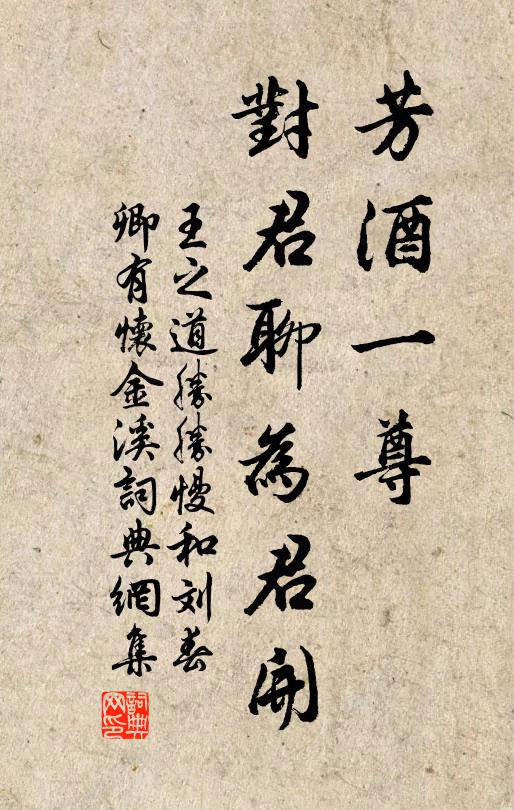 芳酒一尊
對君聊為君開
王之道勝勝慢和刘春
卿有懷金溪詞典網集
詞典
网印